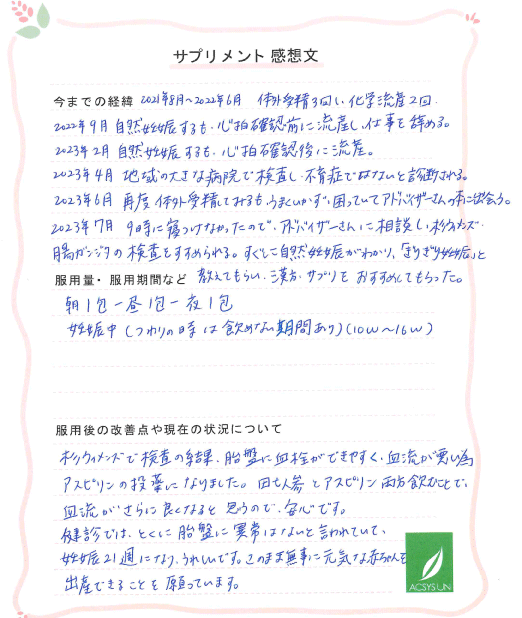 サプリメント 感想文
今までの経緯 2021年8月〜2022年6月 体外受精3回い 化学流産2回.
2022年9月 自然妊娠するも、心拍確認前に流産し、仕事を辞める。
2023年2月 自然妊娠するも、心拍確認後に流産。
2023年4月 地域の大きな病院で検査し、不育症ではないと診断される。
2023年6月 再度体外受精してみるも、うまくいかず、困っていてアドバイザーさんの本に出会う。
2023年7月 9時に寝つけなかったので、アドバイザーさんに相談し、杉ウィメンズ・
腸カンジタの検査をすすめられる。すぐに自然妊娠がわかり、「ぎりぎり妊娠」と
服用量・服用期間など 教えてもらい、漢方・サプリをおすすめしてもらった。
朝1包ー昼1包ー夜1包
妊娠中(つわりの時は飲めない期間あり)(10w〜16w)
服用後の改善点や現在の状況について
杉ウィメンズで検査の結果、胎盤に血栓ができやすく、血流が悪い為
アスピリンの投薬になりました。田七人参とアスピリン両方飲むことで、
血流がさらに良くなると思うので、安心です。
健診では、とくに胎盤に異常はないと言われていて、
妊娠21週になり、うれしいです。このまま無事に元気な赤ちゃんを
出産できることを願っています。
ACSYSUN